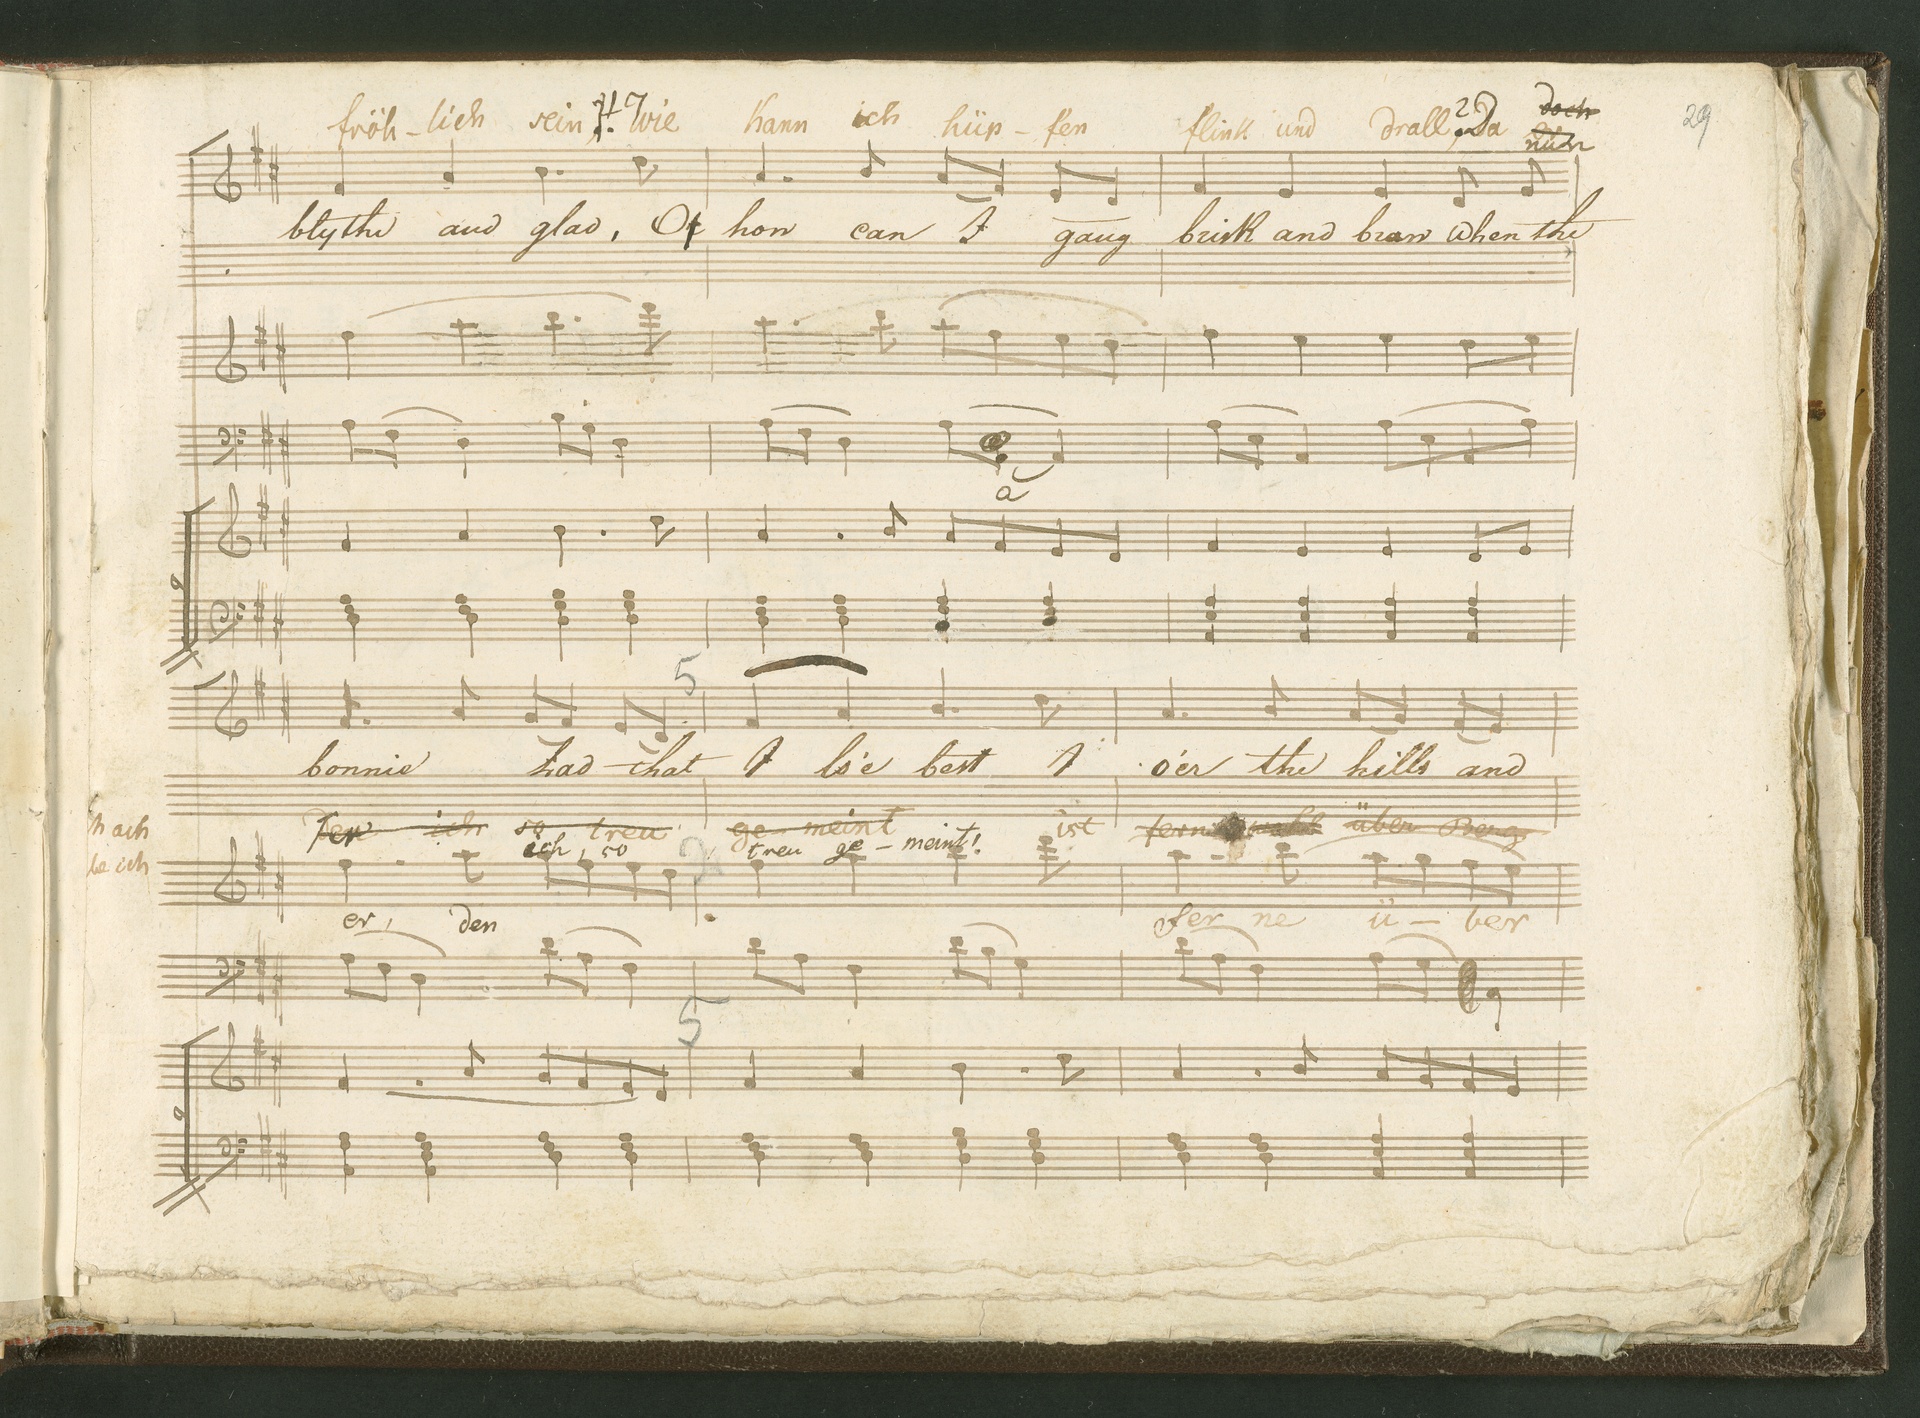 fröh-lich sein, Wie kann ich hüp-fen flink und drall, Da doch
29
nun
blythe and glad, Or hon can I gang brisk and bran when the
a
5
bonnie had that I lo'e best I o'er the hills and
ich so treu ge-meint ist fern wohl über Berg
ich, so treu ge-meint!
er, den fer ne ü-ber
5